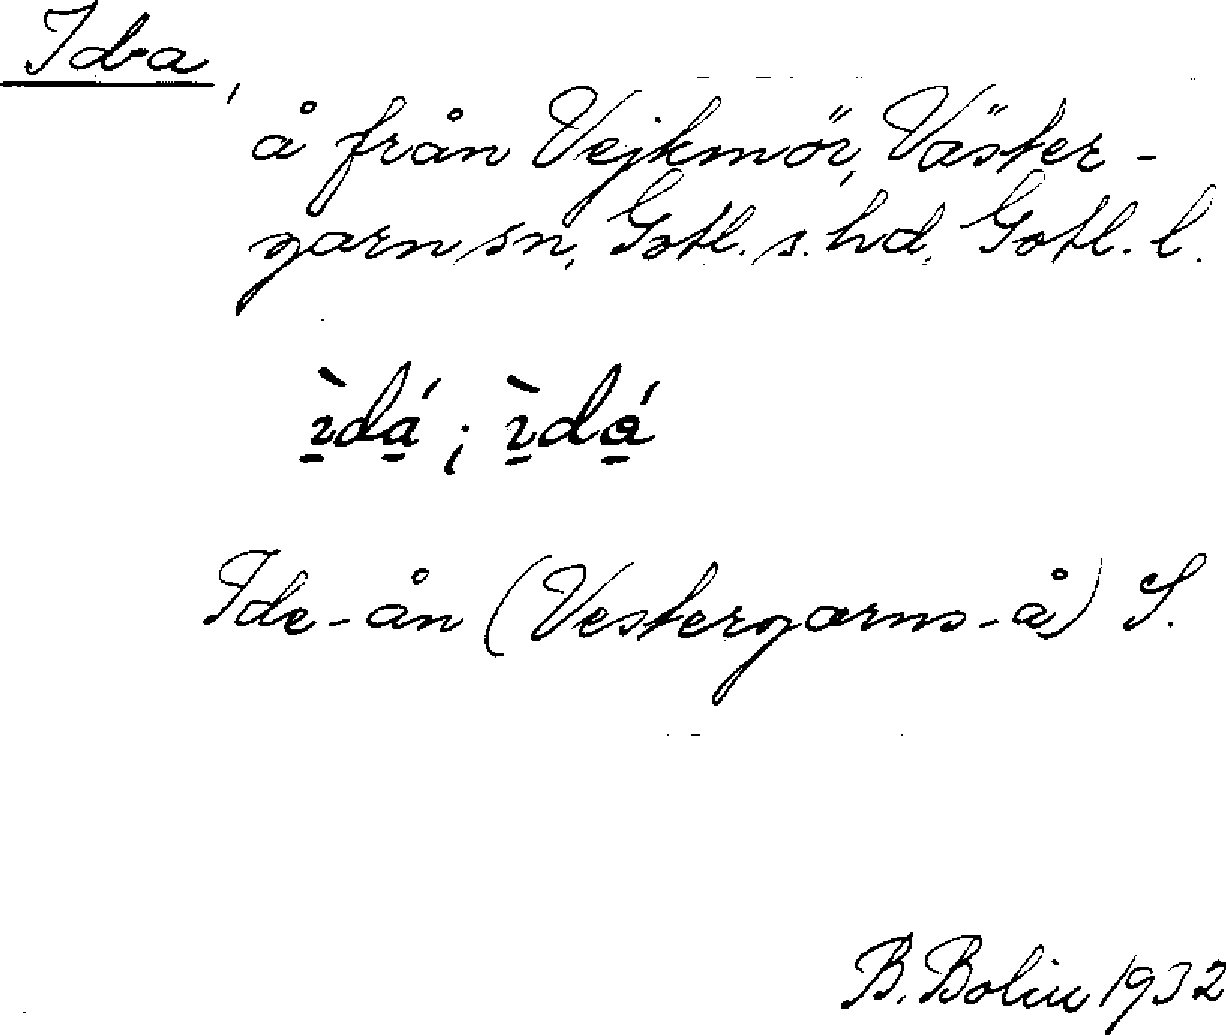 Ida,
å från Vejkmör, Väster-
garn sn, Gotl. s. hd, Gotl. l.
ɪ̱̀dá̱ ; ɪ̱̀dɑ̱́
Ide-ån (Vestergarns-å) S.
B. Bolin 1932